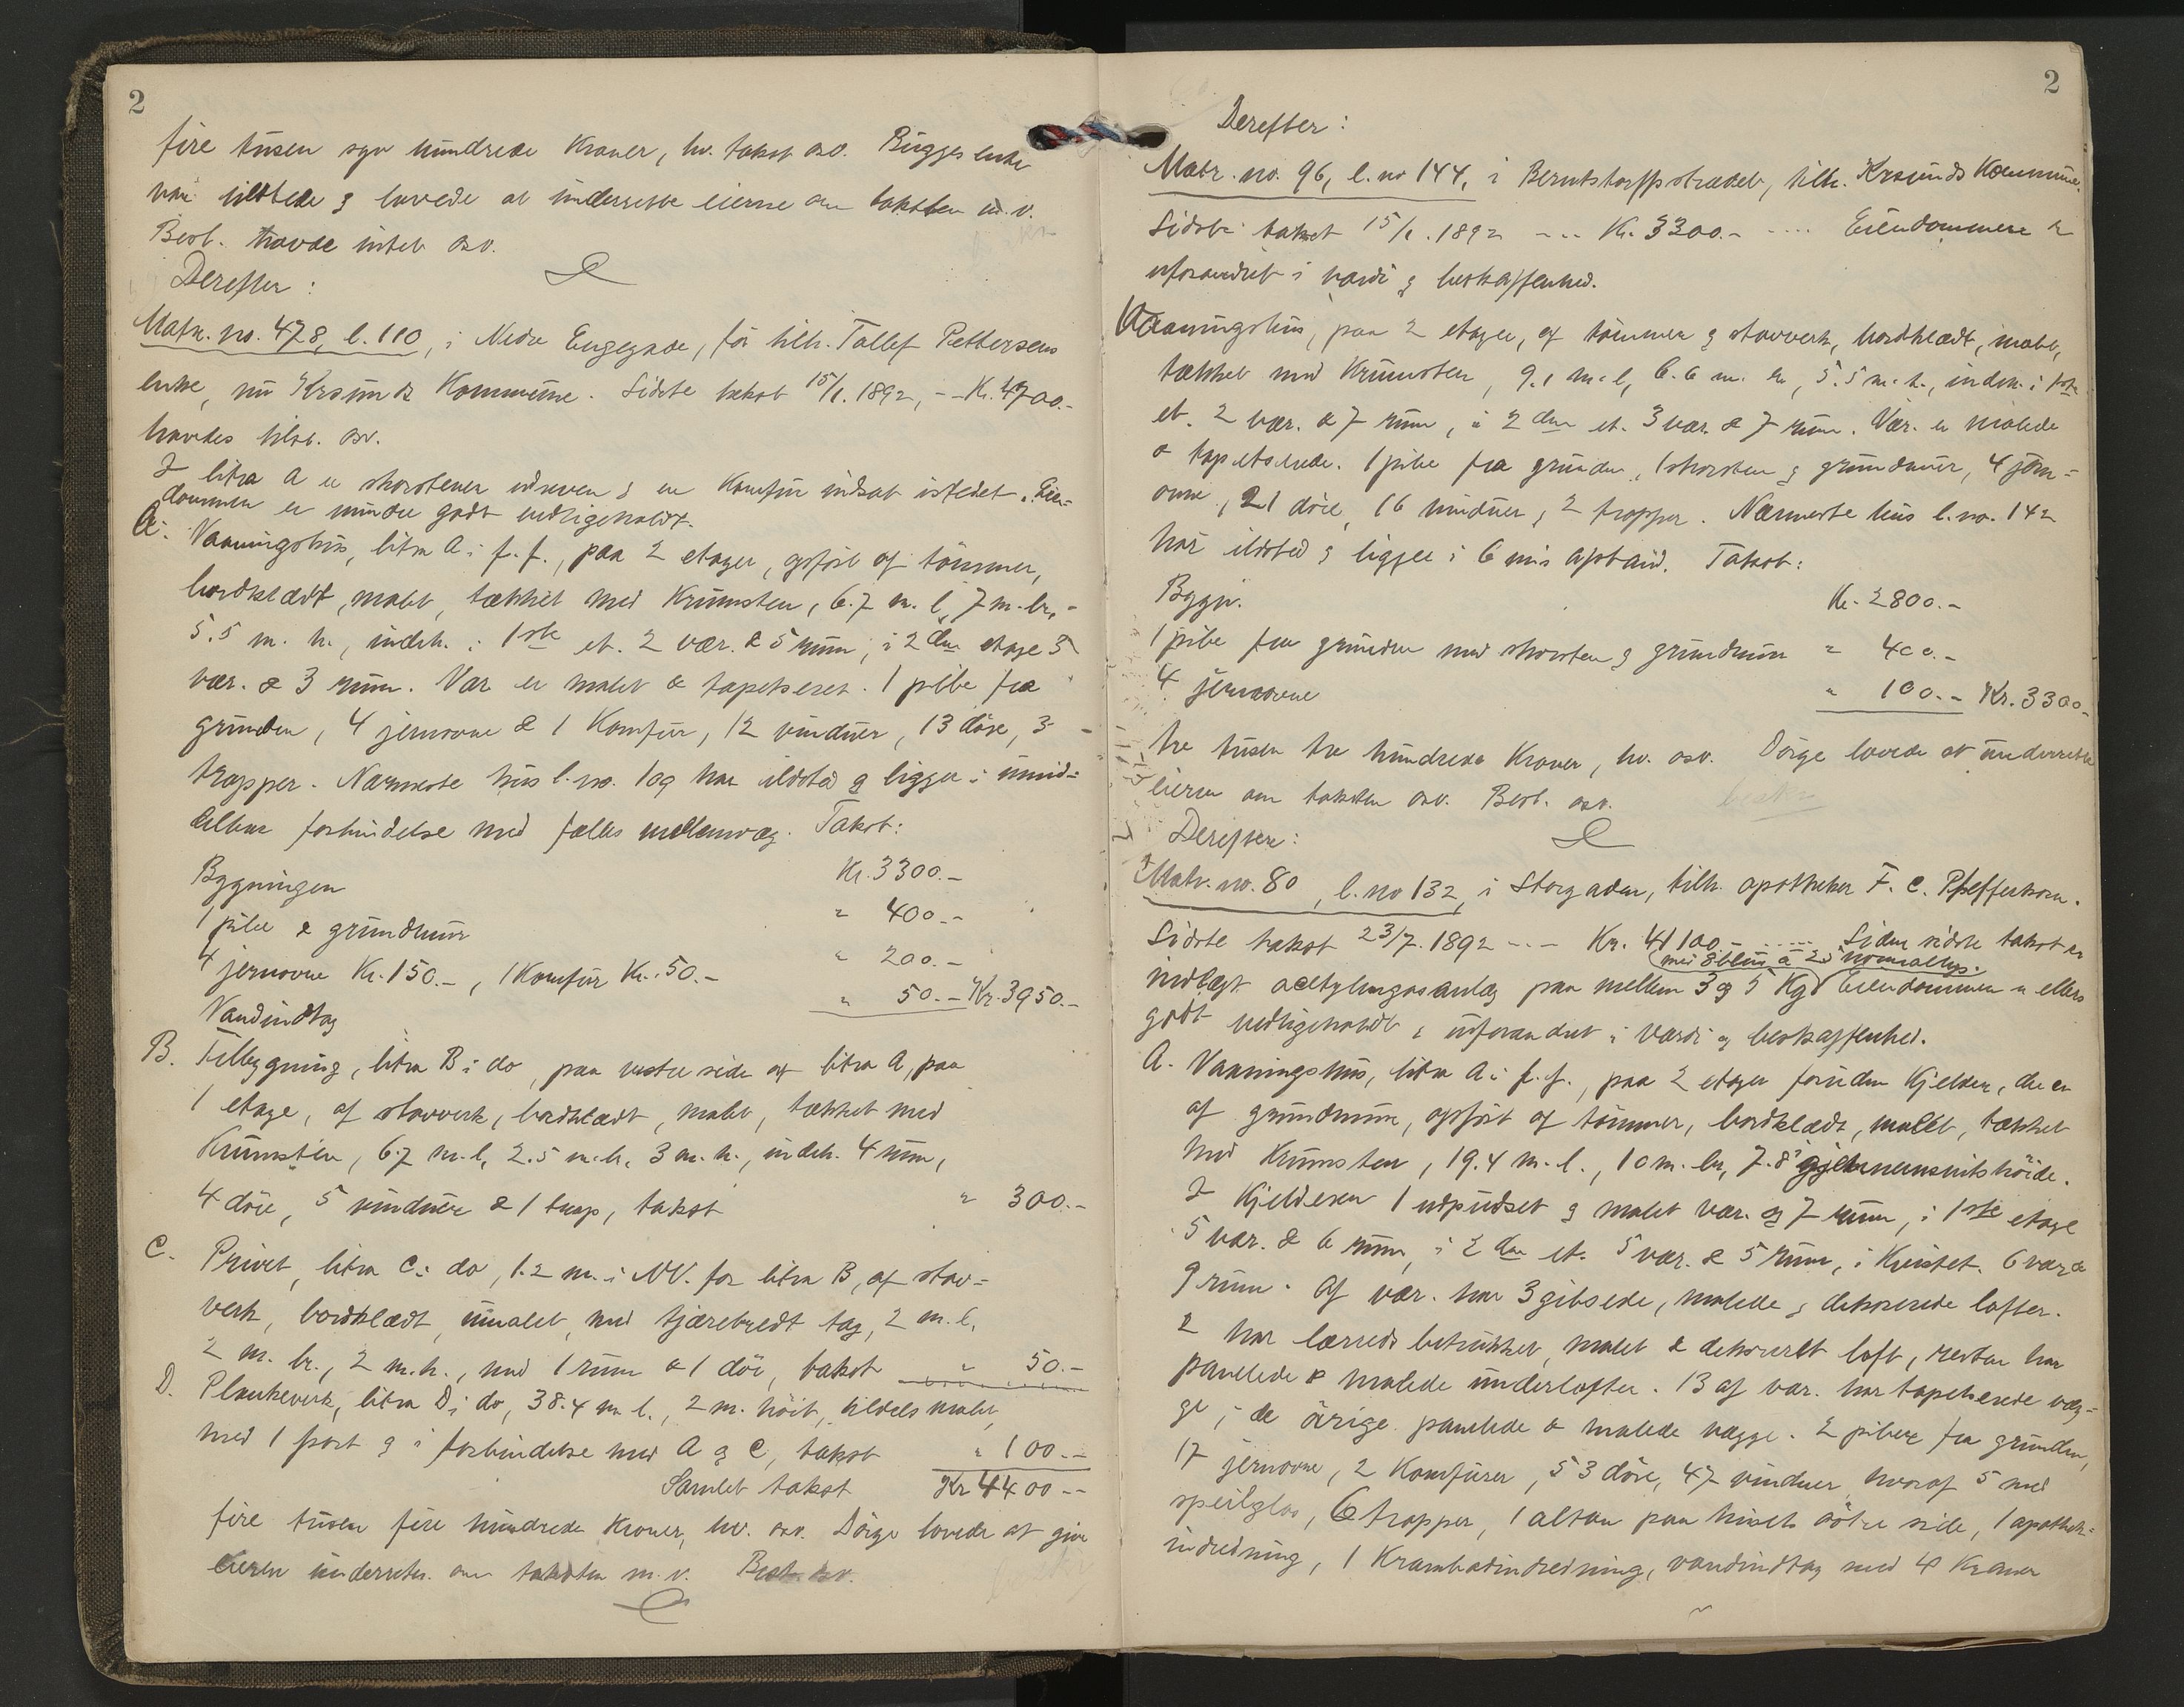 2
fire tusen syv hundrede Kroner, hv. takst osv. Bugges enke
var tilstede & lovede at underrette eierne om taksten m. v.
Best. havde intet osv.
Derefter:
Matr. no. 478, l. 110, i Nedre Engegade, før tilh. Tallef Pettersens
enke, nu Krsunds Kommune. Sidste takst 15/1. 1892, -- Kr. 4700.-
havdes tilst. osv.
I litra A er skorstener udreven & en Komfur indsat istedet. Eien-
dommen er mindre godt vedligeholdt.
A. Vaaningshus, litra A i f. f., paa 2 etager, opført af tømmer,
bordklædt, malet, tækket med Krumsten, 6.7 m. l, 7 m. br,
5.5 m. h., indeh. i 1ste et. 2 vær. & 5 rum, i 2den etage 5
vær. & 3 rum. Vær er malet & tapetseret. 1 pibe fra
grunden, 4 jernovne & 1 Komfur, 12 vinduer, 13 døre, 3
trapper. Nærmeste hus l. no. 109 har ildsted & ligger i umid-
delbar forbindelse med fælles mellemvæg. Takst:
Bygningen Kr. 3300.-
1 pibe & grundmur " 400.-
4 jernovne Kr. 150.-, 1 Komfur Kr. 50.- " 200.-
Vandindtag " 50.- Kr. 3950.-
B. Tilbygning, litra B i do, paa vestre side af litra A, paa
1 etage, af stavverk, bordklædt, malet, tækket med
Krumsten, 6.7 m. l, 2.5 m. b, 3 m. h., indeh. 4 rum,
4 døre, 5 vinduer & 1 trap, takst " 300.-
C. Privet, litra C i do, 1.2 m. i NV. for litra B, af stav-
verk, bordklædt, umalet, med tjærebredt tag, 2 m. l,
2 m. br., 2 m. h., med 1 rum & 1 dør, takst " 50.-
D. Plankeverk, litra D i do, 38.4 m l., 2 m. høit, tildels malet,
med 1 port & i forbindelse med A & C, takst " 100.-
Samlet takst Kr 4400--
fire tusen fire hundrede Kroner, hv. osv. Dørge lovede at give
eieren underretn. om taksten m. v. Best. osv.
2
Derefter:
Matr. no. 96, l. no 144, i Berntstorffstrædet, tilh. Krsunds Kommune.
Sidste takst 15/1. 1892 --- Kr. 3300.- .... Eiendommen er
uforandret i værdi & beskaffenhed.
Vaaningshus, paa 2 etager, af tømmer & stavverk, bordklædt, malet,
tækket med Krumsten, 9.1 m. l, 6.6 m. br, 5.5 m. h., indeh. i 1ste
et. 2 vær. & 7 rum, i 2den et. 3 vær. & 7 rum. Vær. er malede
& tapetserede. 1 pibe fra grunden, 1 skorsten & grundmur, 4 jern-
ovne, 21 døre, 16 vinduer, 2 trapper. Nærmeste hus l. no. 142
har ildsted & ligger i 6 m's afstand. Takst:
Bygn. Kr. 2800.-
1 pibe fra grunden med skorsten & grundmur " 400.-
4 jernovne " 100.- Kr. 3300.-
tre tusen tre hundrede Kroner, hv. osv. Dørge lovede at underrette
eieren om taksten osv. Best. osv.
Derefter:
Matr. no. 80, l. no 132, i Storgaden, tilh. apotheker F. C. Pfefferkorn.
Sidste takst 23/7. 1892 --- Kr. 41100.- ..... Siden sidste takst er
med 8 blus à 25 normallys.
indlagt acetylengasanlæg paa mellem 3 & 5 Kg Eiendommen er ellers
godt vedligeholdt & uforandret i værdi & beskaffenhed.
A. Vaaningshus, litra A i f. f., paa 2 etager foruden Kjelder, der er
af grundmur, opført af tømmer, bordklædt, malet, tækket
med Krumsten, 19.4 m. l., 10 m. br, 7.8 gjennemsnitshøide.
I Kjelderen 1 udpudset & malet vær. og 7 rum, i 1ste etage
5 vær. & 6 rum, i 2den et. 5 vær. & 5 rum, i Kvistet. 6 vær &
9 rum. Af vær. har 3 gibsede, malede & dekorerede lofter.
2 har lærreds betrukket, malet & dekoreret loft, resten har
panelede & malede underlofter. 13 af vær. har tapetserede væg-
ge, de øvrige panelede & malede vægge. 2 piber fra grunden,
17 jernovne, 2 Komfurer, 53 døre, 47 vinduer hvoraf 5 med
speilglas, 6 trapper, 1 altan paa husets østre side, 1 apothek-
indredning, 1 Krambodindredning, vandindtag med 4 Kraner